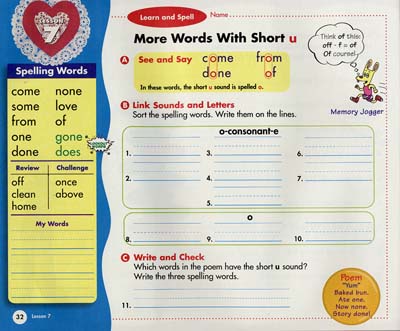 LESSON
7
Spelling Words
come none
some love
from of
one gone
done does
Review Challenge
off once
clean above
home
My Words
32 Lesson 7
Learn and Spell Name
More Words With Short u
A See and Say come from
done of
In these words, the short u sound is spelled o.
Think of this:
off - f = of
Of course!
Memory Jogger
B Link Sounds and Letters
Sort the spelling words. Write them on the lines.
o-consonant-e
1. 3. 6.
2. 4. 7.
5.
o
8. 9. 10.
C Write and Check
Which words in the poem have the short u sound?
Write the three spelling words.
11.
Poem
"Yum"
Baked bun.
Ate one.
Now none.
Story done!